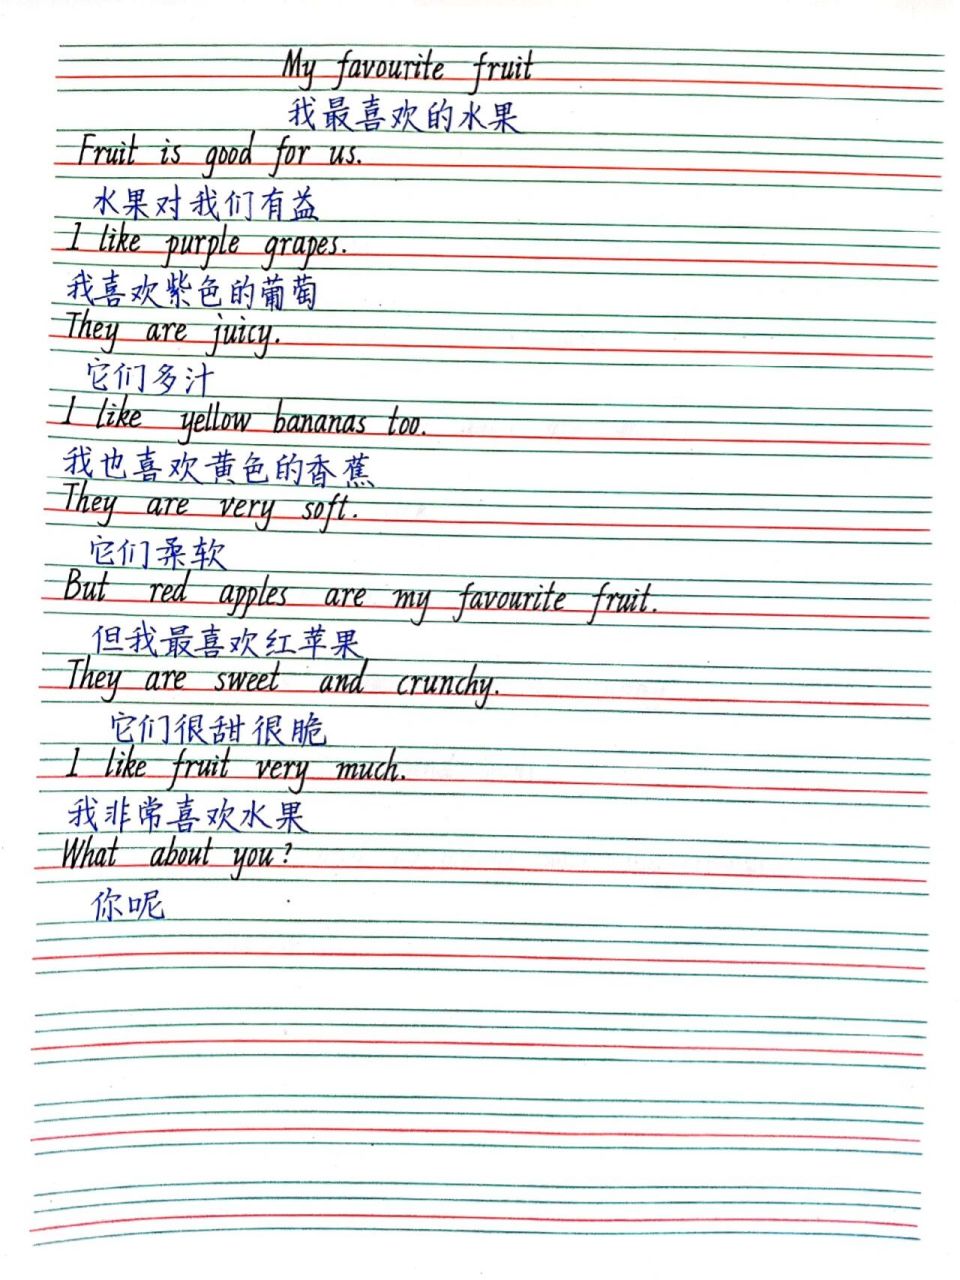 My favourite fruit
我最喜欢的水果
Fruit is good for us.
水果对我们有益
I like purple grapes.
我喜欢紫色的葡萄
They are juicy.
它们多汁
I like yellow bananas too.
我也喜欢黄色的香蕉
They are very soft.
它们柔软
But red apples are my favourite fruit.
但我最喜欢红苹果
They are sweet and crunchy.
它们很甜很脆
I like fruit very much.
我非常喜欢水果
What about you?
你呢